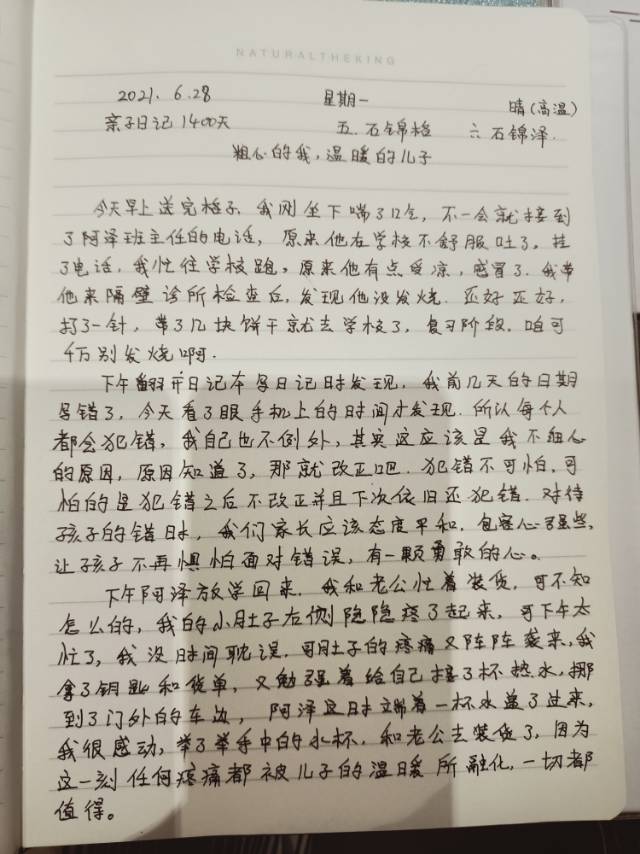 NATURALTHEKING
2021. 6.28 星期一 晴(高温)
亲子日记1400天 五.石锦格 六石锦泽.
粗心的我,温暖的儿子
今天早上送完格子.我刚坐下喘了口气,不一会就接到
了阿泽班主任的电话,原来他在学校不舒服吐了,挂
了电话,我忙往学校跑,原来他有点受凉,感冒了.我带
他来隔壁诊所检查后,发现他没发烧.还好还好,
打了一针,带了几块饼干就去学校了,复习阶段.咱可
千万别发烧啊.
下午翻开日记本写日记时发现,我前几天的日期
写错了,今天看了眼手机上的时间才发现.所以每个人
都会犯错,我自己也不例外,其实这应该是我不细心
的原因,原因知道了,那就改正吧.犯错不可怕,可
怕的是犯错之后不改正并且下次依旧还犯错.对待
孩子的错时,我们家长应该态度平和,包容心强些,
让孩子不再惧怕面对错误,有一颗勇敢的心。
下午阿泽放学回来.我和老公忙着装货,可不知
怎么的,我的小肚子左侧隐隐疼了起来,可下午太
忙了,我没时间耽误,可肚子的疼痛又阵阵袭来,我
拿了钥匙和货单,又勉强着给自己接了杯热水,挪
到了门外的车边,阿泽这时端着一杯水盖了过来,
我很感动,举了举手中的水杯,和老公去装货了,因为
这一刻任何疼痛都被儿子的温暖所融化,一切都
值得。